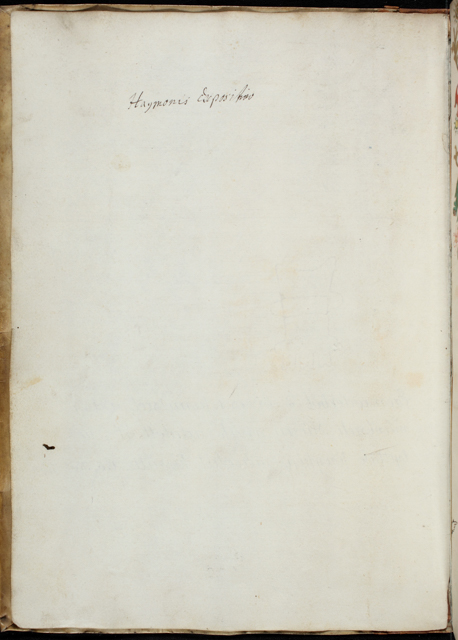 Haymonis Expositio